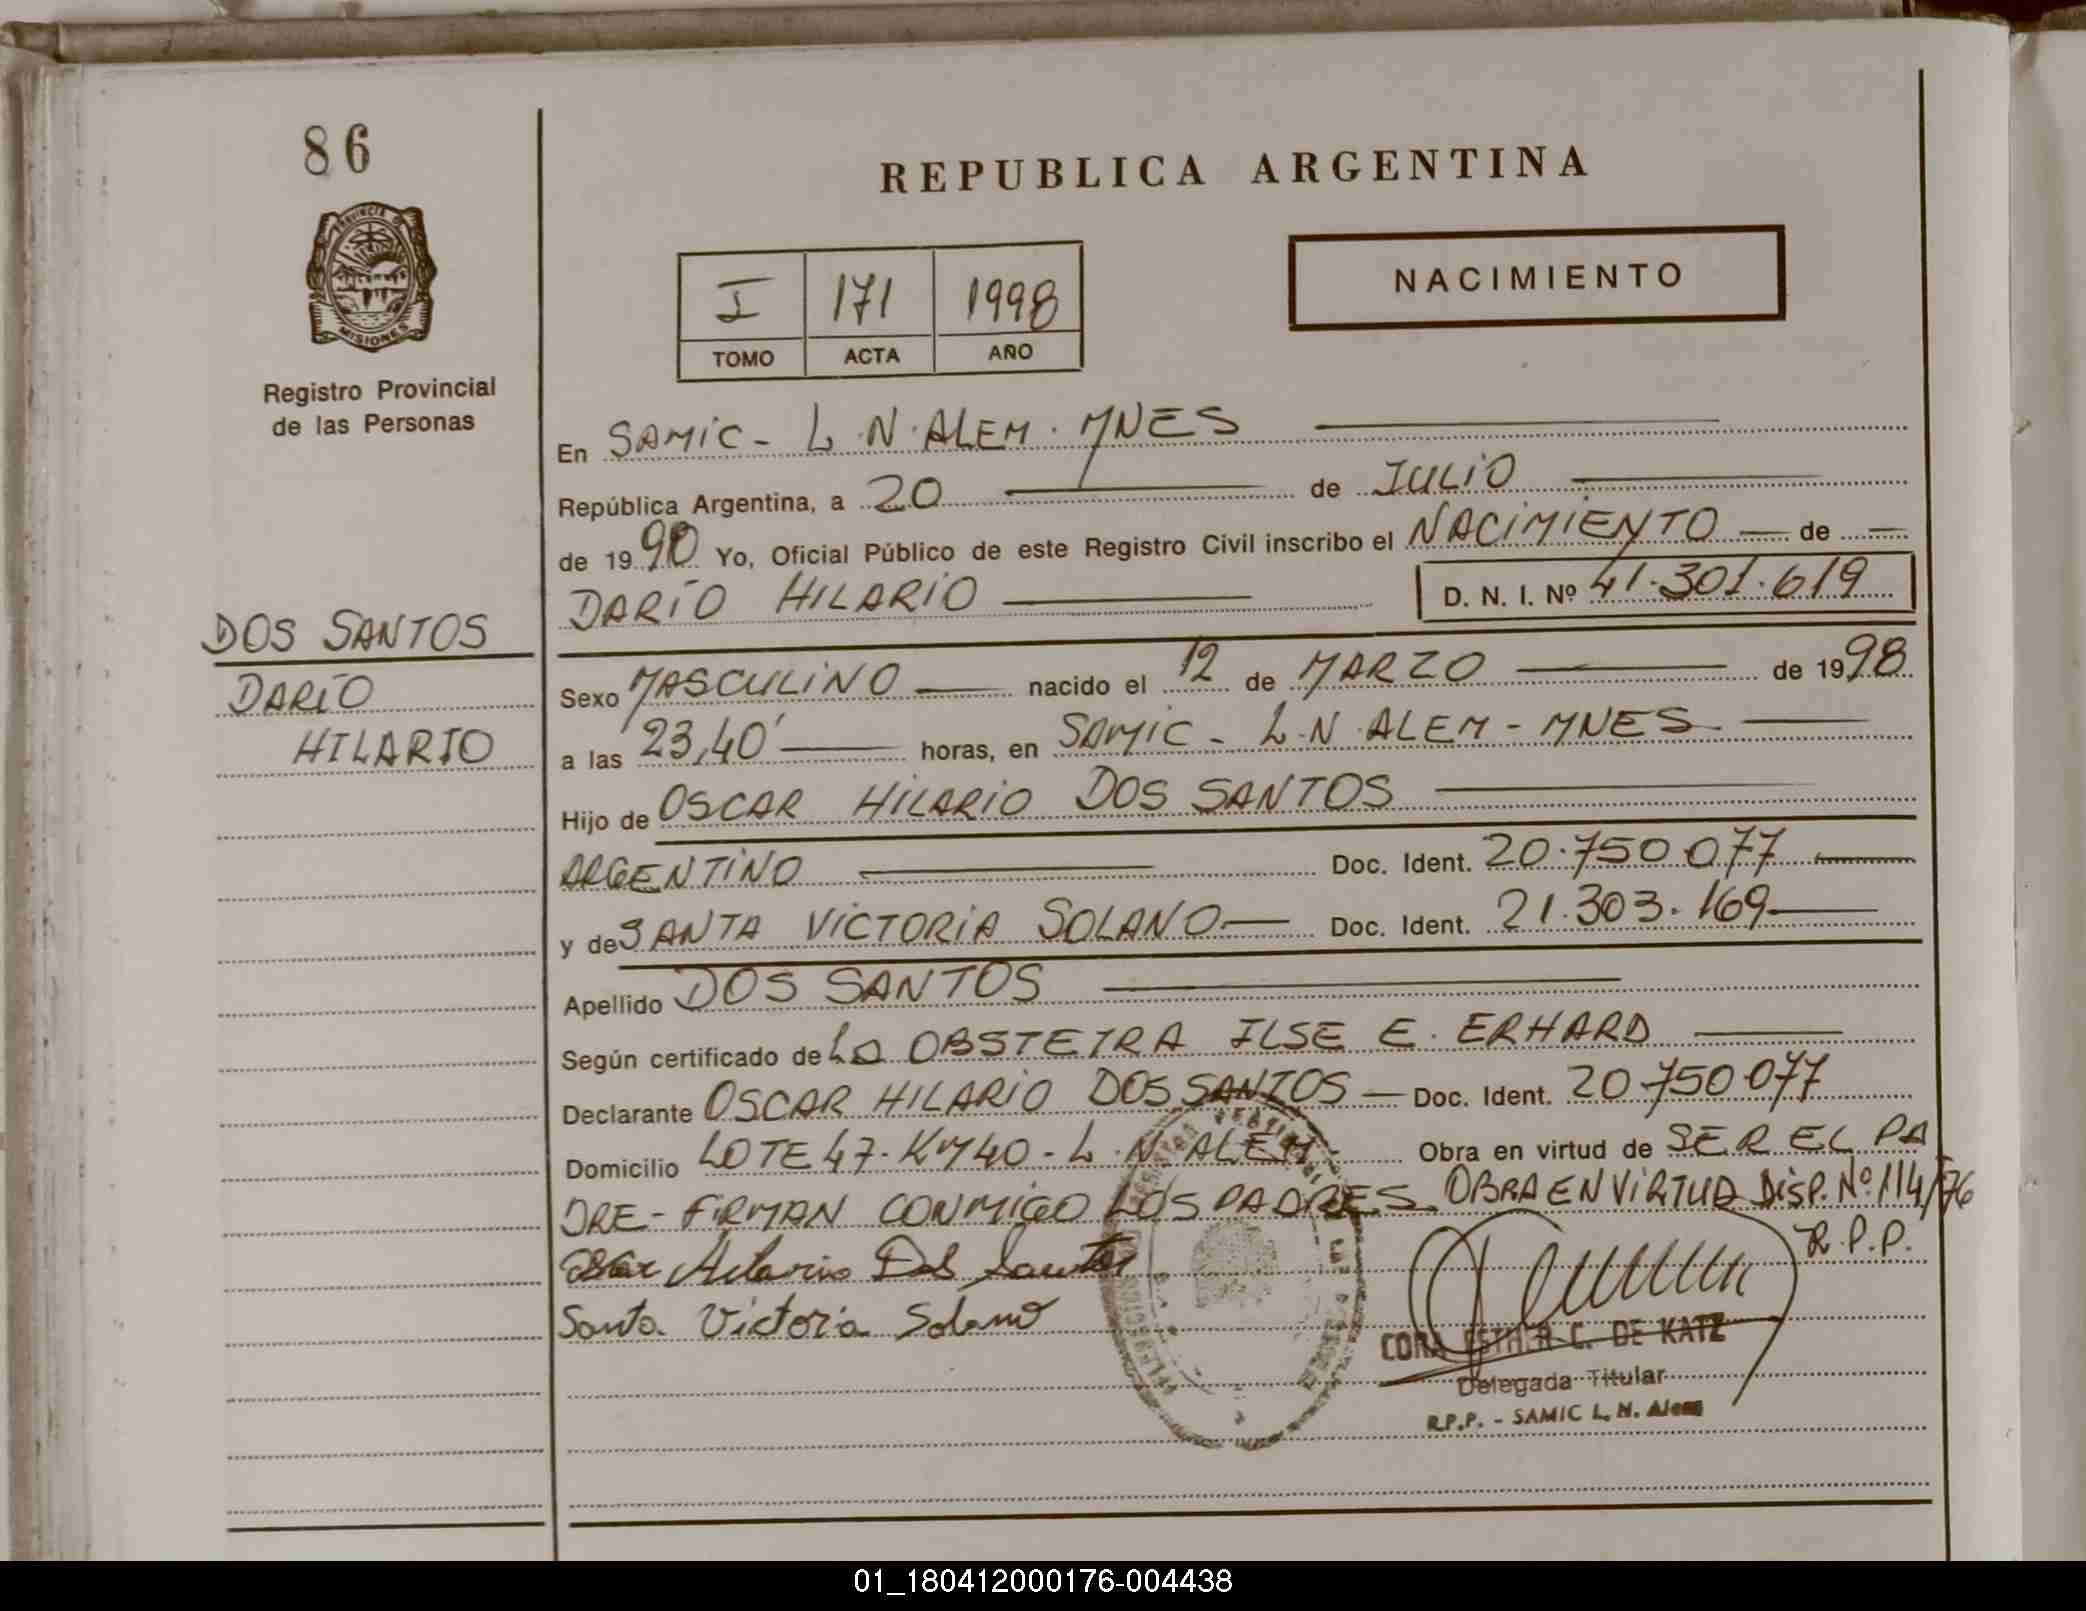 86
REPUBLICA ARGENTINA
PROVINCIA DE
MISIONES
Registro Provincial
de las Personas
NACIMIENTO
I 171 1998
TOMO ACTA AÑO
En SAMIC - L.N.ALEM. MNES
República Argentina, a 20 de JULIO
de 1990 Yo, Oficial Público de este Registro Civil inscribo el NACIMIENTO de
DARÍO HILARIO D. N. I. Nº 41.301.619
DOS SANTOS
DARÍO
HILARIO
Sexo MASCULINO nacido el 12 de MARZO de 1998
a las 23,40' horas, en SAMIC - L.N ALEM - MNES
Hijo de OSCAR HILARIO DOS SANTOS
ARGENTINO Doc. Ident. 20.750.077
y de SANTA VICTORIA SOLANO Doc. Ident. 21.303.169
Apellido DOS SANTOS
Según certificado de LA OBSTETRA ILSE E. ERHARD
Declarante OSCAR HILARIO DOS SANTOS Doc. Ident. 20.750.077
Domicilio LOTE 47. KM 40 - L.N. ALEM Obra en virtud de SER EL PA
DRE - FIRMAN CONMIGO LOS PADRES. OBRA EN VIRTUD DISP. Nº 114/76
R.P.P.
Oscar Hilario Dos Santos
Santa Victoria Solano
CORA ESTHER C. DE KATZ
Delegada Titular
R.P.P. - SAMIC L. N. Alem
01_180412000176-004438